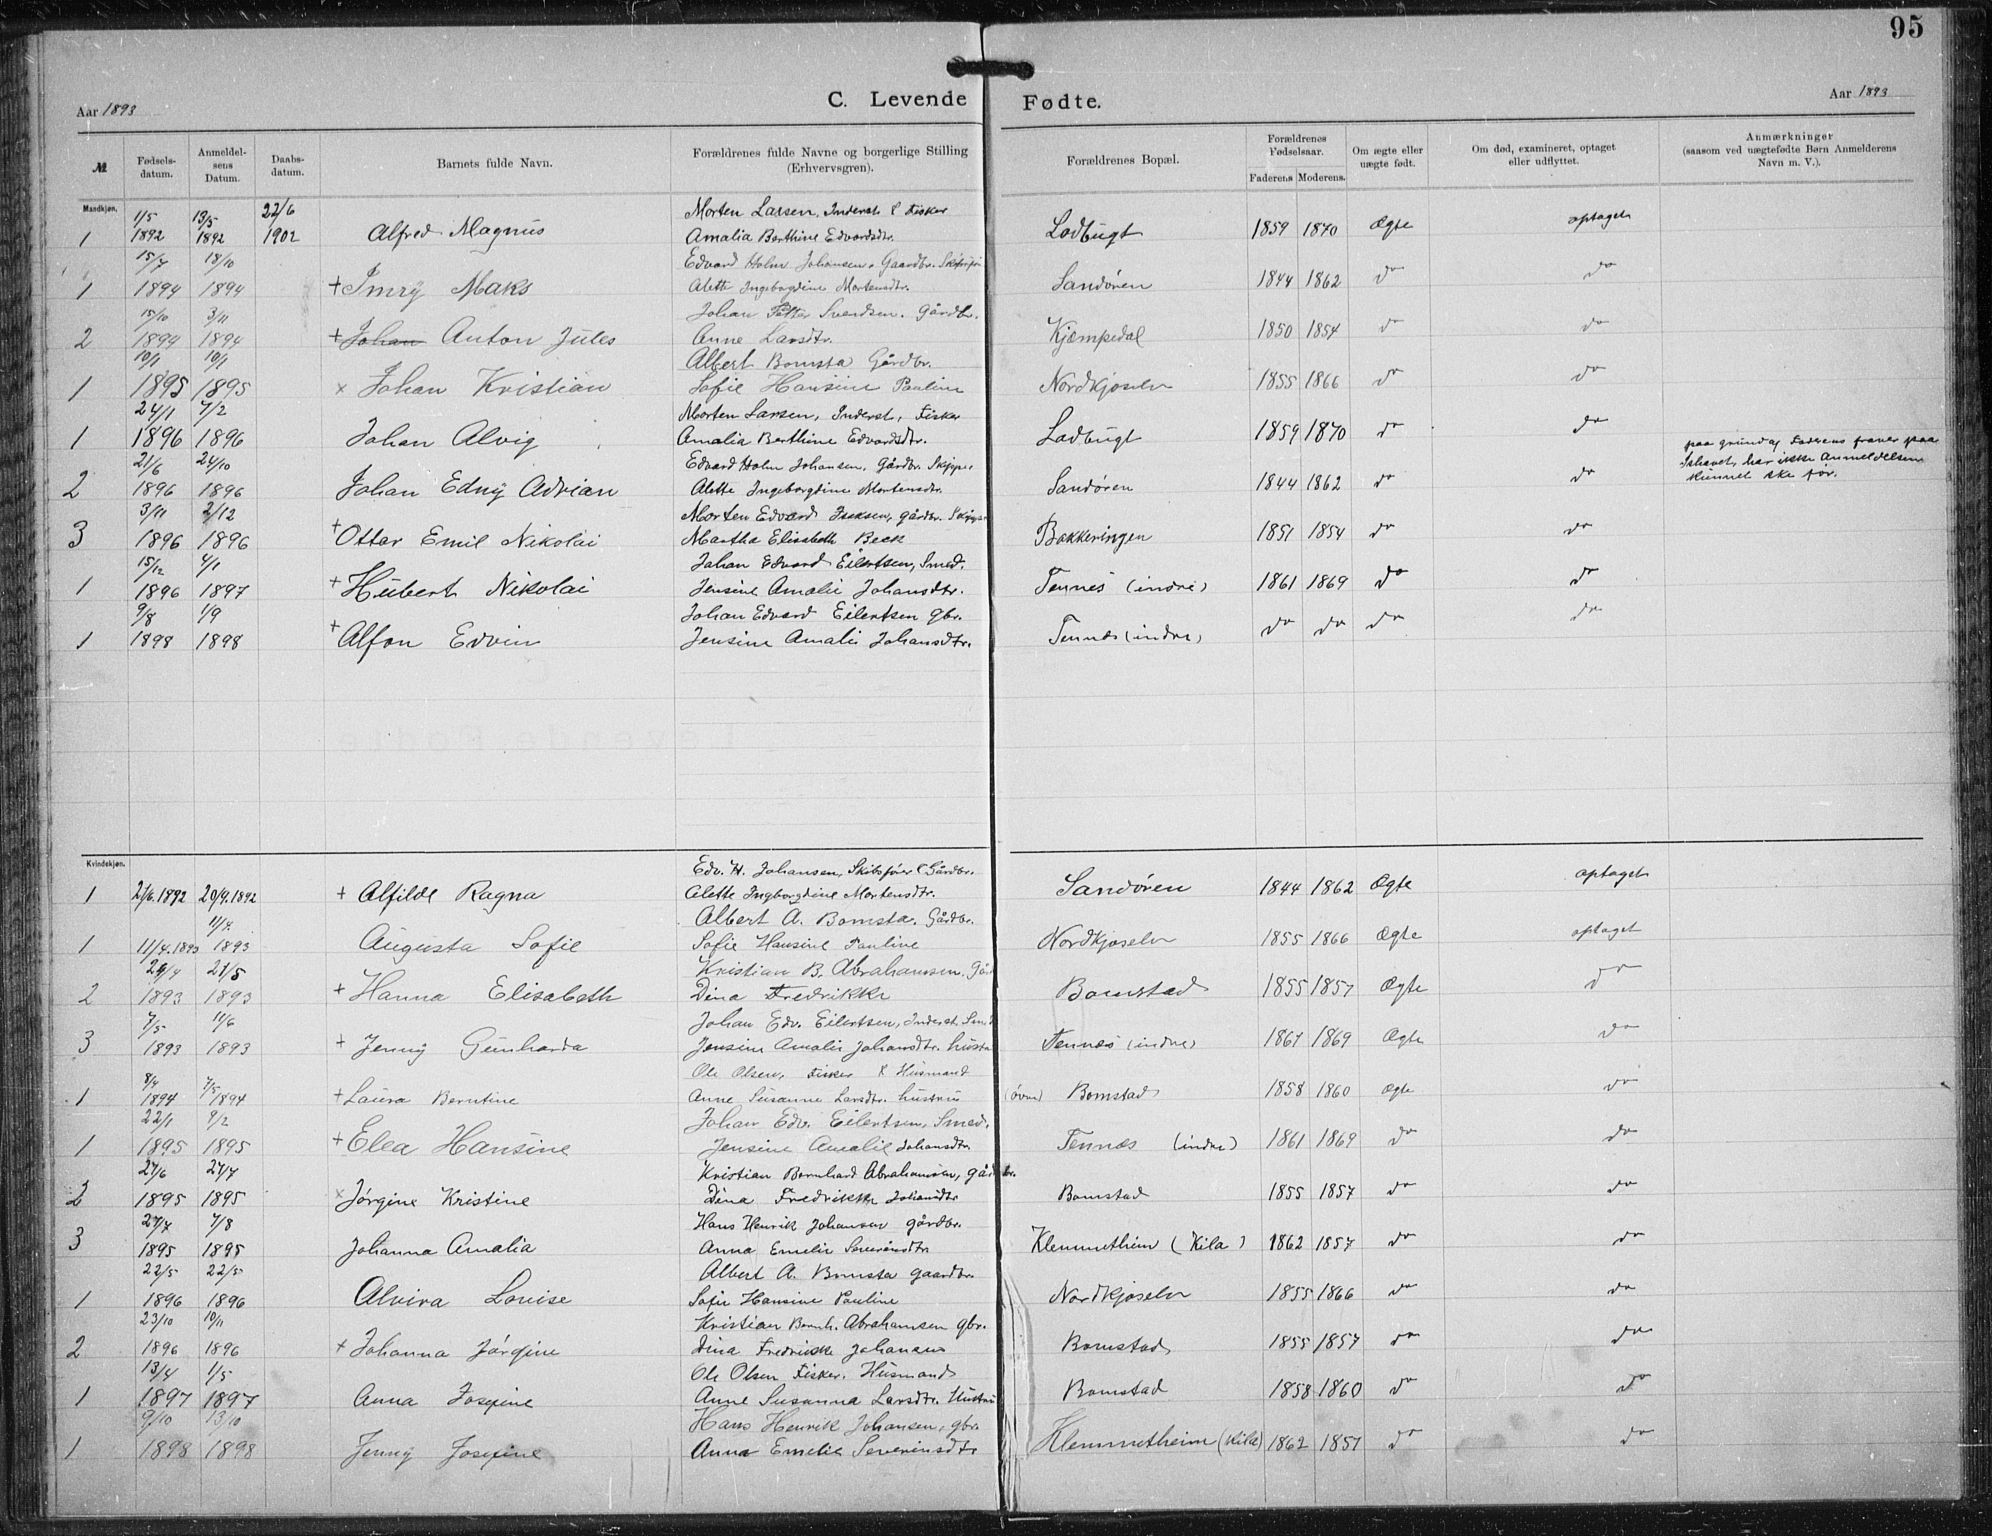 95
Aar 1893
C. Levende
Fødte.
Aar 1893
№ Fødsels-datum. Anmeldel-sens Datum. Daabs-datum. Barnets fulde Navn. Forældrenes fulde Navne og borgerlige Stilling (Erhvervsgren). Forældrenes Bopæl. Forældrenes Fødselsaar. Faderens Moderens. Om ægte eller uægte født. Om død, examineret, optaget eller udflyttet. Anmærkninger (saasom ved uægtefødte Børn Anmelderens Navn m. V.).
Mandkjøn.
1/5 13/5 22/6 Morten Larsen, Inderst & Fisker
1 1892 1892 1902 Alfred Magnus Amalia Berthine Edvardsdtr. Lodbugt 1859 1870 Ægte optaget
15/7 18/10 Edvard Holm Johansen, Gaardbr.
1 1894 1894 + Imry Maks Alette Ingeborgdine Mortensdtr. Sandøren 1844 1862 do do
15/10 3/11 Johan Petter Svendsen. Gårdbr.
2 1894 1894 + Johan Anton Jules Anne Larsdtr. Kjempedal 1850 1854 do do
10/1 10/1 Albert Bomsta Gårdbr.
1 1895 1895 x Johan Kristian Sofie Hansine Pauline Nordkjoselv 1855 1866 do do
24/1 7/2 Morten Larsen, Inderst, Fisker
1 1896 1896 Johan Alvig Amalia Berthine Edvardsdtr. Lodbugt 1859 1870 do do
21/6 24/10 Edvard Holm Johansen, Gårdbr. Skipper
2 1896 1896 Johan Edny Adrian Alette Ingeborgdine Mortensdtr. Sandøren 1844 1862 do do paa grund af Faderens fravær paa Ishavet, har ikke Anmeldelsen kunnet ske før.
3/11 2/12 Morten Edvard Isaksen, gårdbr. Skipper
3 1896 1896 + Ottar Emil Nikolai Martha Elisabeth Beck Bakkeringen 1851 1854 do do
15/12 4/1 Johan Edvard Eilertsen, Smed.
1 1896 1897 + Hubert Nikolai Jensine Amalie Johansdtr. Tennes (indre) 1861 1869 do do
9/8 1/9 Johan Edvard Eilertsen gbr.
1 1898 1898 + Alfon Edvin Jensine Amalie Johansdtr. Tennæs (indre) do do do do
Kvindekjøn.
Edv. H. Johansen, Skibsfører & Gårdbr.
1 21/6.1892 20/9.1892 + Alfilde Ragna Alette Ingborgdine Mortensdtr. Sandøren 1844 1862 Ægte optaget
11/4. Albert A. Bomsta. Gårdbr.
1 11/4.1893 1893 Augusta Sofie Sofie Hansine Pauline Nordkjoselv 1855 1866 Ægte optaget
21/5 Kristian B. Abrahamsen.
2 1893 1893 + Hanna Elisabeth Dina Fredrikke Bomstad 1855 1857 Ægte do
7/5 11/6 Johan Edv. Eilertsen, Inderst. Smed
3 1893 1893 + Jenny Gunharda Jensine Amalie Johansdtr. hustru Tennæs (indre) 1861 1869 Ægte do
8/4 7/5 Ole Olsen, Fisker & Husmand
1 1894 1894 + Laura Berntine Anne Susanne Larsdtr. hustru (øvre) Bomstad 1858 1860 Ægte do
22/1 9/2 Johan Edv. Eilertsen, Smed.
1 1895 1895 + Elea Hansine Jensine Amalie Johansdtr. Tennæs (indre) 1861 1869 do do
27/6 27/7 Kristian Bernhard Abrahamsen, gårdbr.
2 1895 1895 x Jørgine Kristine Dina Fredrikke Johansdtr Bomstad 1855 1857 do do
27/7 7/8 Hans Henrik Johansen gårdbr.
3 1895 1895 Johanna Amalia Anna Emelie Severinsdtr Klemmetheim (Kila) 1862 1857 do do
22/5 22/5 Albert A. Bomsta gaardbr.
1 1896 1896 Alvira Lovise Sofie Hansine Pauline Nordkjoselv 1855 1866 do do
23/10 10/11 Kristian Bernh. Abrahamsen gbr.
2 1896 1896 + Johanna Jørgine Dina Fredrikke Bomstad 1855 1857 do do
13/4 1/5 Ole Olsen Fisker. Husmand
1 1897 1897 Anna Josefine Anne Susanna Larsdtr. Hustru Bomstad 1858 1860 do do
9/10 13/10 Hans Henrik Johansen, gbr.
1 1898 1898 Jenny Josefine Anna Emelie Severinsdtr Klemmetheim (Kila) 1862 1857 do do